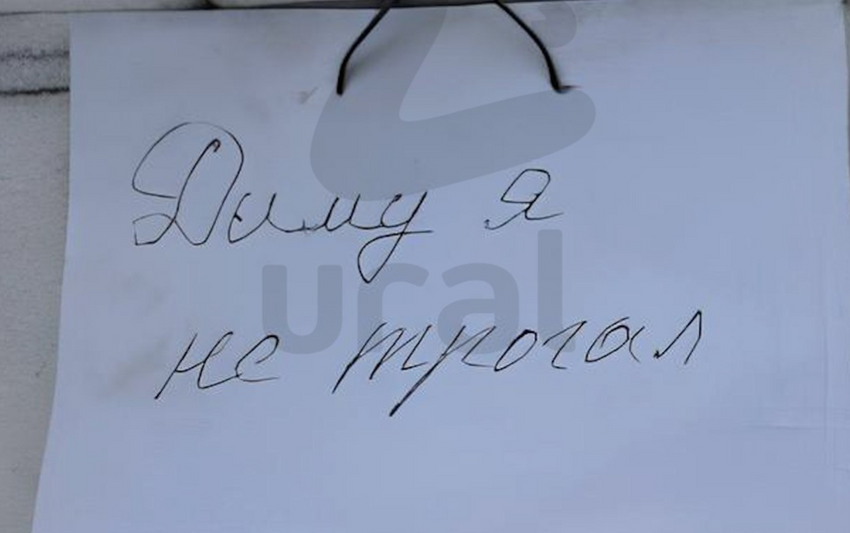 Диму я
ural
не трогал